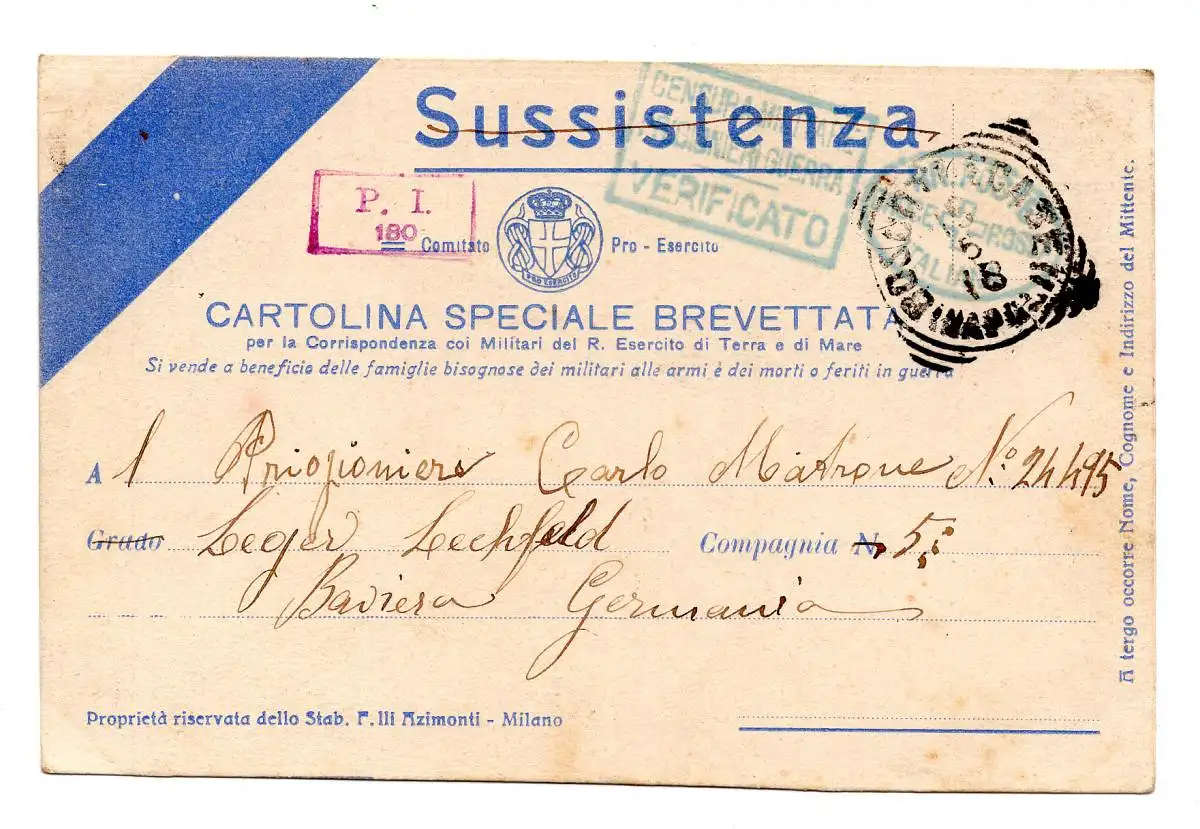 Sussistenza
CENSURA MILITARE
PRIGIONIERI GUERRA
VERIFICATO
P. I.
180
Comitato Pro - Esercito
PRO ESERCITO
CARTOLINA SPECIALE BREVETTATA
per la Corrispondenza coi Militari del R. Esercito di Terra e di Mare
Si vende a beneficio delle famiglie bisognose dei militari alle armi è dei morti o feriti in guerra
A l Prigioniero Carlo Matrone No. 24495
Grado Leger Lechfeld Compagnia N. 5
Baviera Germania
Proprietà riservata dello Stab. F.lli Azimonti - Milano
A tergo occorre Nome, Cognome e Indirizzo del Mittente.